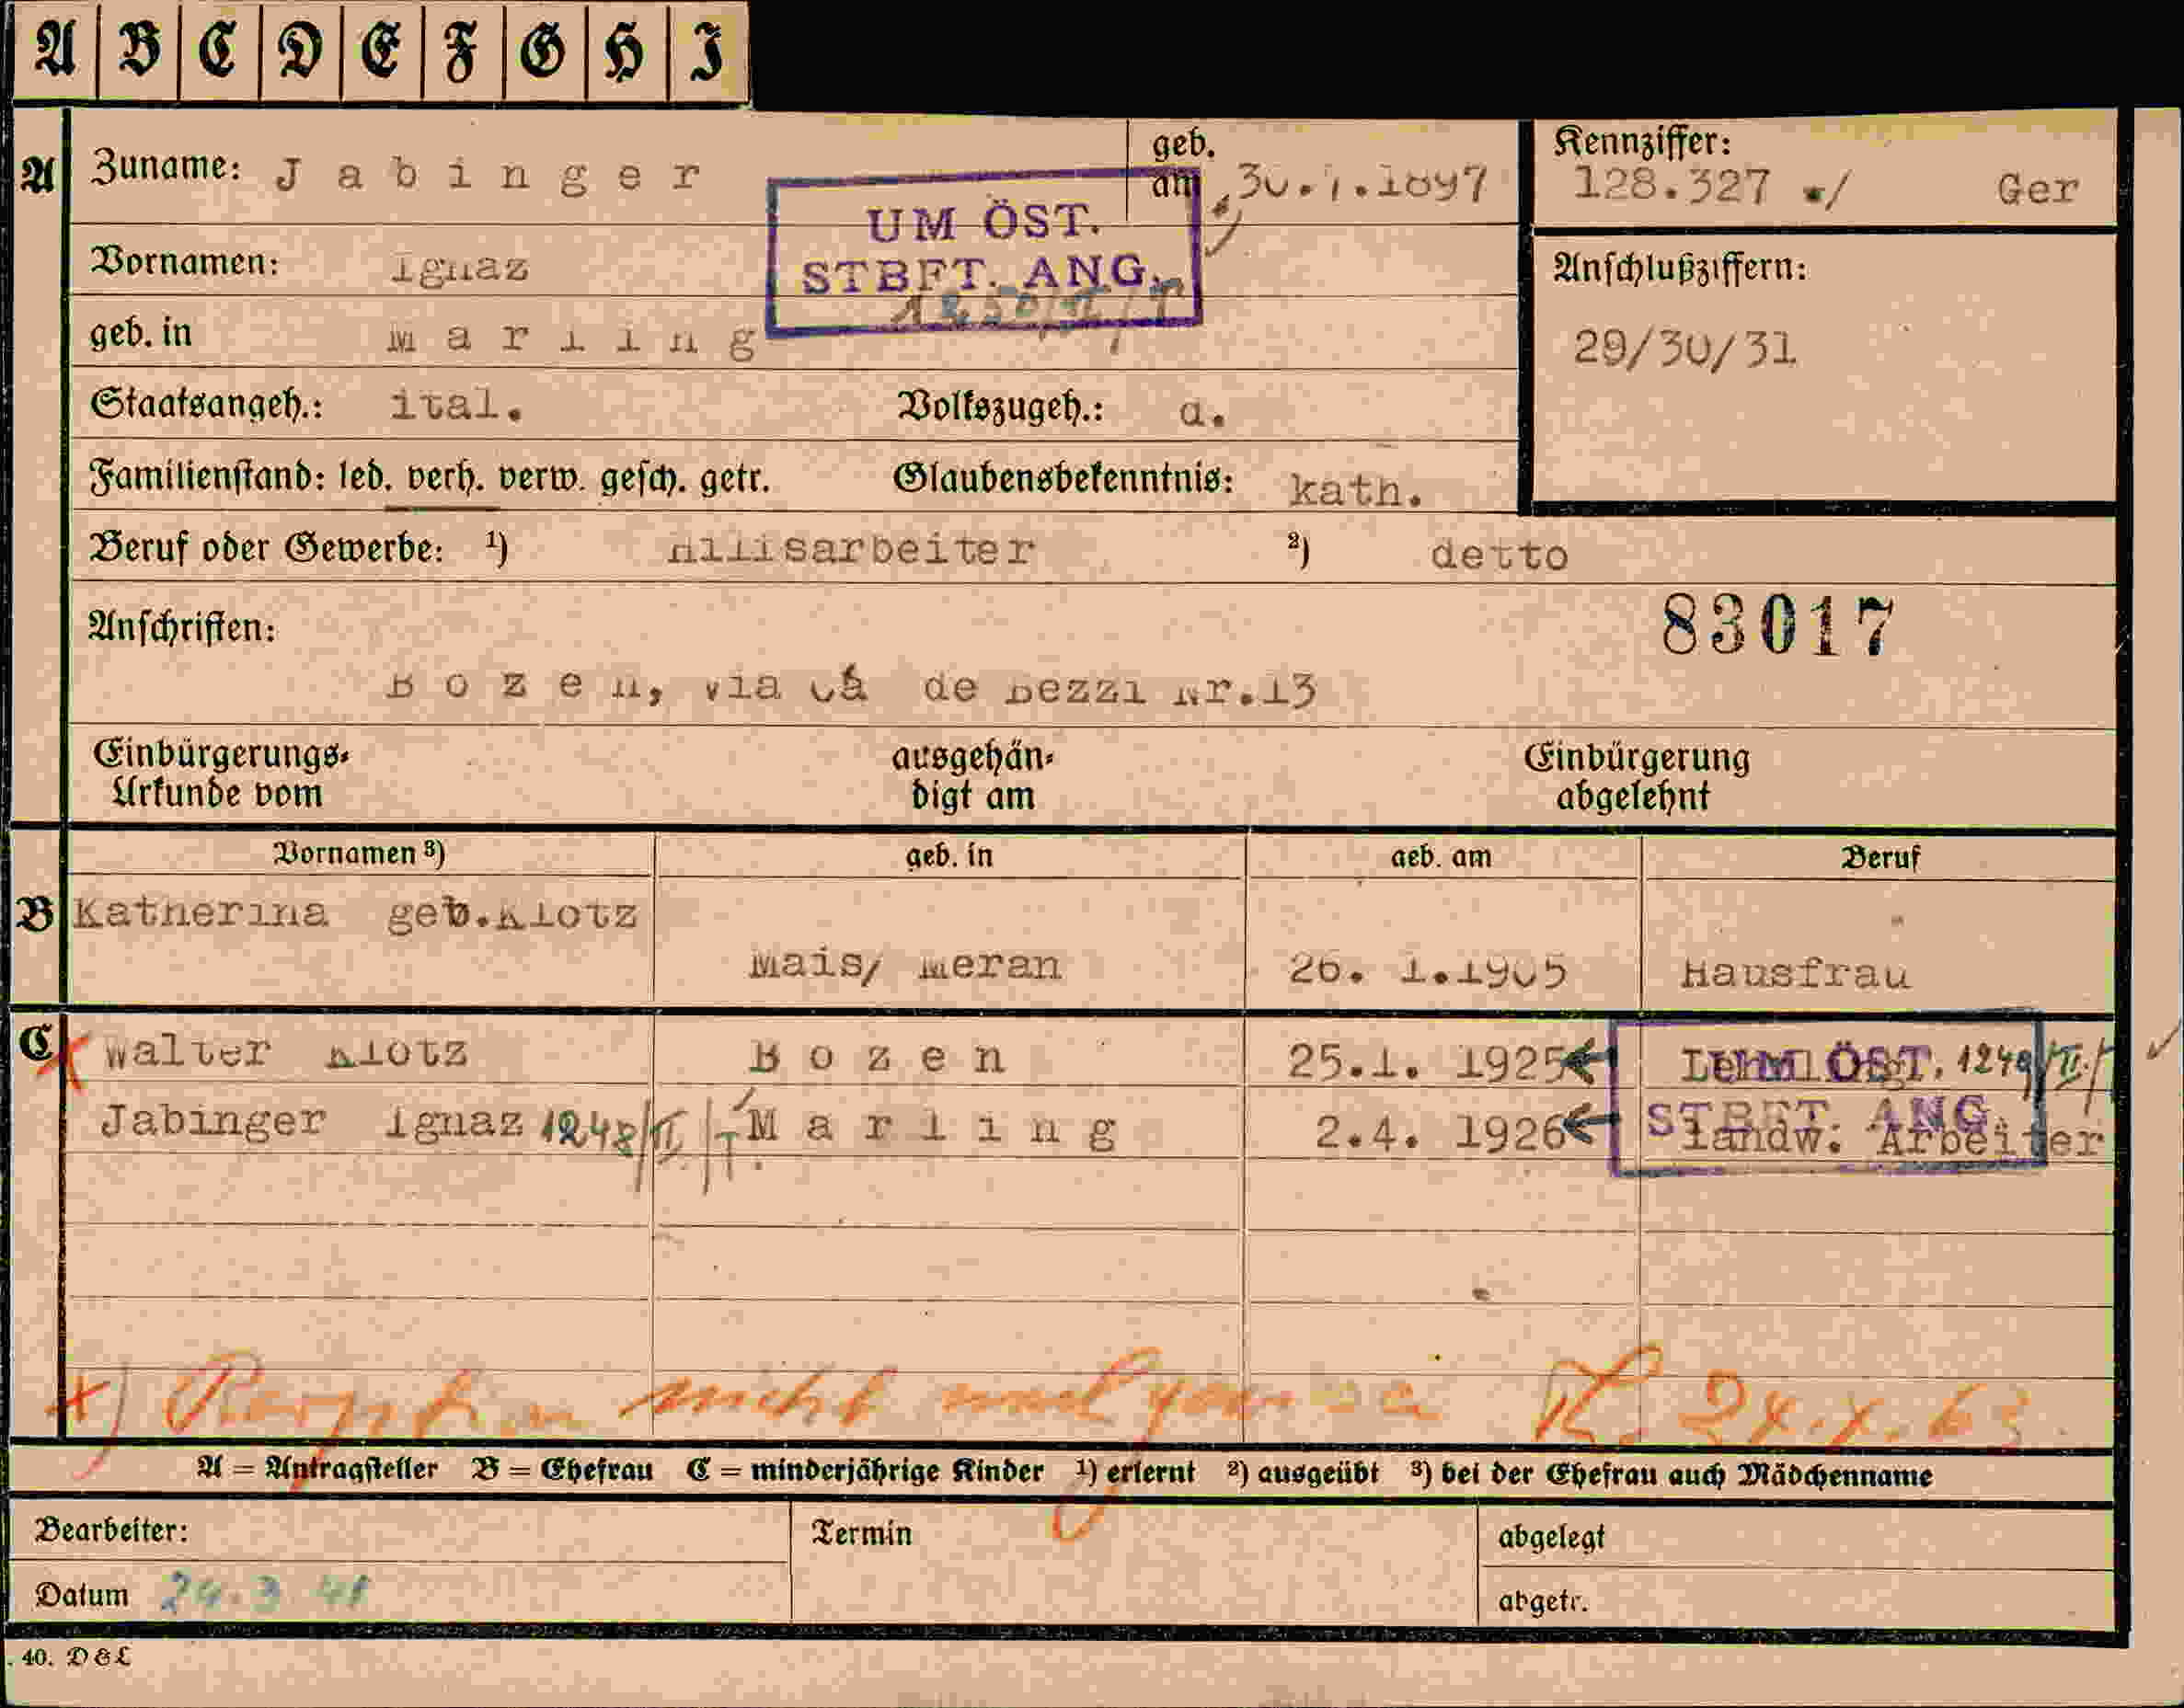 A B C D E F G H I
A Zuname: Jabinger geb. am 30.7.1897 Kennziffer: 128.327 / Ger
UM ÖST. STBFT. ANG.
Vornamen: Ignaz Anschlußziffern:
geb. in Marling 29/30/31
Staatsangeh.: ital. Volkszugeh.: d.
Familienstand: led. verh. verw. gesch. getr. Glaubensbekenntnis: kath.
Beruf oder Gewerbe: ¹) Hilfsarbeiter ²) detto
Anschriften: 83017
Bozen, via Cá de Bezzi Nr.13
Einbürgerungs- ausgehän- Einbürgerung
Urkunde vom digt am abgelehnt
Vornamen ³) geb. in geb. am Beruf
B Katherina geb.Klotz
Mais/ Meran 26. 1.1905 Hausfrau
C Walter Klotz Bozen 25.1. 1925 UM ÖST. 1249/II/T
Jabinger Ignaz 1248/II/T Marling 2.4. 1926 STBFT. ANG. landw. Arbeiter
x) nicht 24.X.63.
A = Antragsteller B = Ehefrau C = minderjährige Kinder ¹) erlernt ²) ausgeübt ³) bei der Ehefrau auch Mädchenname
Bearbeiter: Termin abgelegt
Datum 24.3 41 abgetr.
40. D&L